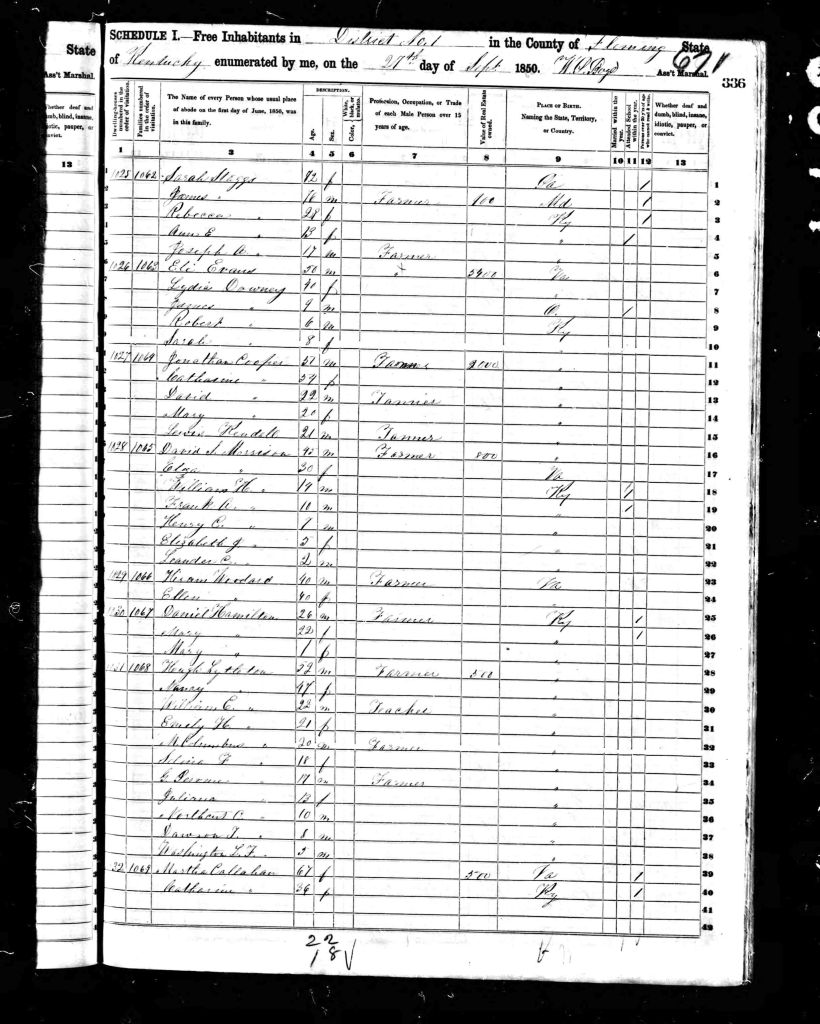 State
Ass't Marshal.
Whether deaf and dumb, blind, insane, idiotic, pauper, or convict.
13
SCHEDULE I.—Free Inhabitants in District No. 1 in the County of Fleming State
of Kentucky enumerated by me, on the 27th day of Sept 1850. Ass't Marshal.
67
336
Dwelling-houses numbered in the order of visitation.
Families numbered in the order of visitation.
The Name of every Person whose usual place of abode on the first day of June, 1850, was in this family.
DESCRIPTION.
Age.
Sex.
Color, White, black, or mulatto.
Profession, Occupation, or Trade of each Male Person over 15 years of age.
Value of Real Estate owned.
PLACE OF BIRTH. Naming the State, Territory, or Country.
Married within the year.
Attended School within the year.
Persons over 20 y'rs of age who cannot read & write.
Whether deaf and dumb, blind, insane, idiotic, pauper, or convict.
1 2 3 4 5 6 7 8 9 10 11 12 13
1025 1062 Sarah f 1 1
James " m Farmer 100 Md 1 2
Rebecca " 28 f Ky 1 3
Ann E " 13 f " 1 4
Joseph A " 17 m Farmer " 5
1026 1063 Eli Evans 50 m " Va 6
Lydia Downey 40 f " 7
James " 9 m O. 1 8
Robert " 6 m Ky 9
Sarah " 8 f " 10
1027 1064 Jonathan Cooper 57 m 2000 " 11
Catharine " 54 f " 12
David " 22 m " 13
Mary " 20 f " 14
Lewis Kendall 21 m Tanner " 15
1028 1065 David Morrison 45 m Farmer 800 " 16
" 30 f Va 17
William H. " 14 m Ky 1 18
Frank A. " 10 m " 1 19
Henry C. " m " 20
Elizabeth J. " 5 f " 21
Leander C. " 2 m " 22
1029 1066 Hiram Woodard 40 m Farmer Va 23
Ellen " 40 f " 24
1030 1067 Daniel Hamilton 26 m Farmer Ky 1 25
Mary " 22 f " 1 26
Mary " 1 f " 27
1068 Hugh Lytleton m Farmer 500 " 28
Nancy " 47 f " 29
William E. " 22 m " 30
Emily H " 21 f " 31
M Columbus " 20 m Farmer " 32
" 18 f " 33
G " 17 m Farmer " 34
Juliana " 13 f " 35
C. " 10 m " 36
Dawson T. " 8 m " 37
Washington L. F. " 5 m " 38
32 1069 Martha Callahan 67 f 500 Va 1 39
Catharine " 36 f Ky 1 40
41
42